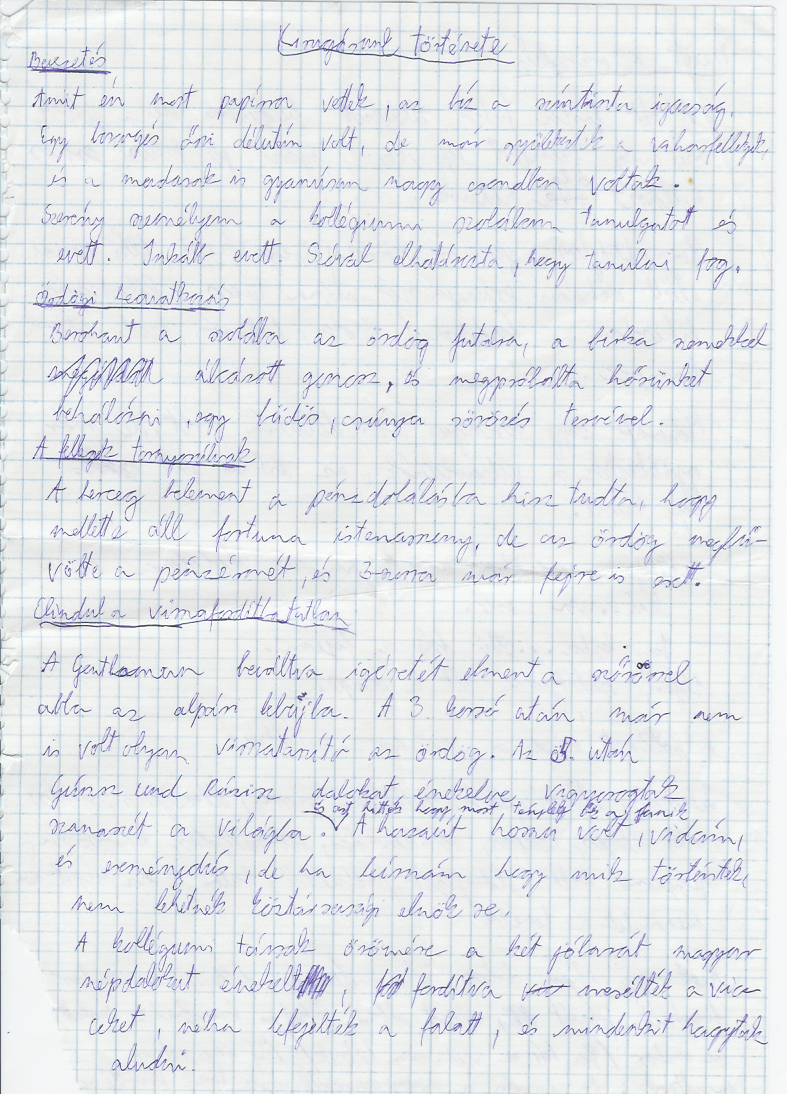 Kirugásunk története
Bevezetés
Amit én most papírra vetek, az bíz a színtiszta igazság.
Egy borongós őszi délután volt, de már gyülekeztek a viharfellegek,
és a madarak is gyanúsan nagy csendben voltak.
Szerény személyem a kollégiumi szobában tanulgatott és
evett. Inkább evett. Szóval elhatározta, hogy tanulni fog.
Ördögi beavatkozás
Berohant a szobába az ördög futára, a birka nemekkel
álcázott gonosz, és megpróbálta hősünket
behálózni, egy büdös, csúnya sörözés tervével.
A fellegek tornyosulnak
A herceg belement a pénzdobálásba hisz tudta, hogy
mellette áll fortuna istenasszony, de az ördög megbű-
völte a pénzérmét, és 3-szorra már fejre is esett.
Elindul a visszafordíthatatlan
A Gentleman beváltva ígéretét elment a szőrössel
abba az alpári lebujba. A 3. korsó után már nem
is volt olyan visszataszító az ördög. Az 5. után
Günsz und Rózisz dalokat énekelve vigyorogtak
és azt hitték hogy most tényleg ők a fanik
szanaszét a világba. A hazaút hosszú volt, vidám,
és eseménydús, de ha leírnám hogy mik történtek,
nem lehetnék köztársasági elnök se.
A kollégiumi társak örömére a két jóbarát magyar
népdalokat énekelt, fordítva mesélték a vic-
ceket, néha lefejelték a falatt, és mindenkit hagytak
aludni.